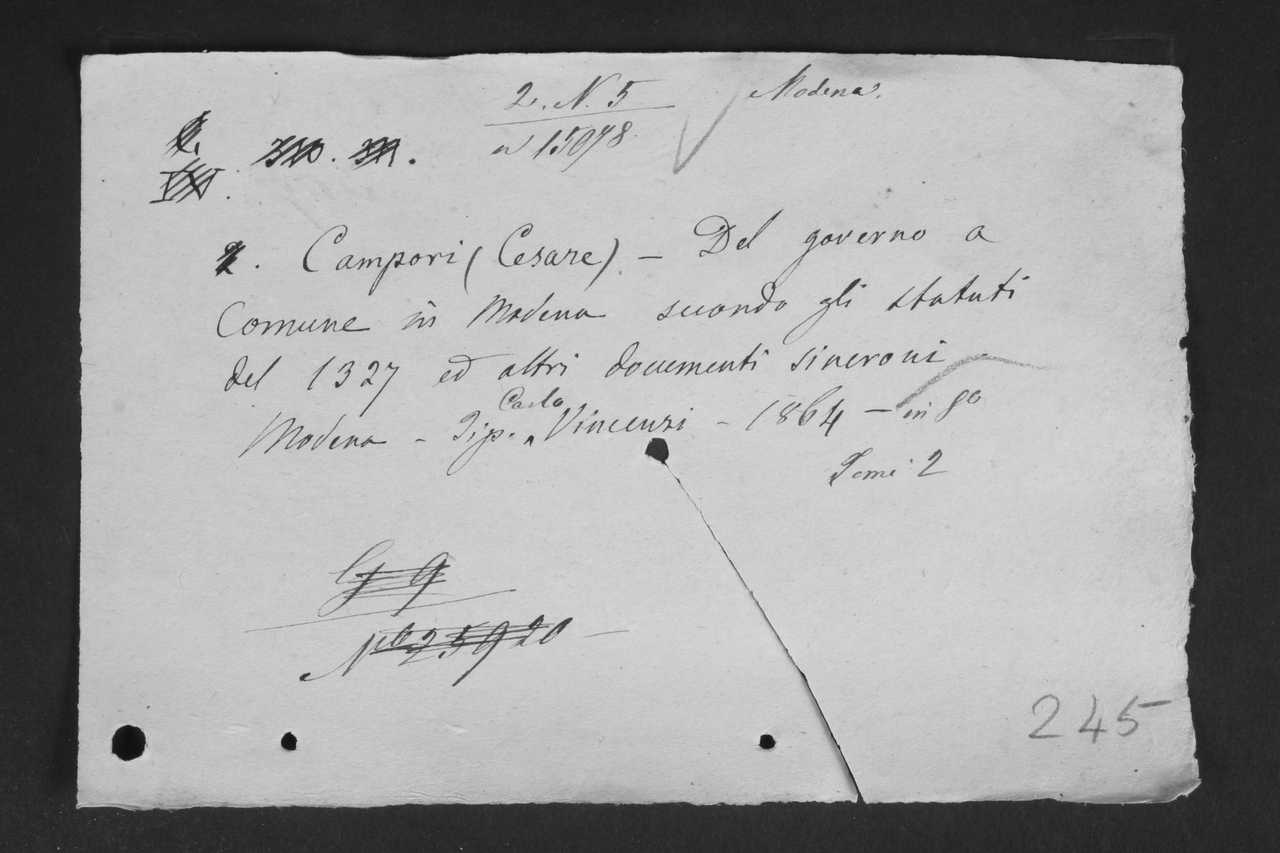 2. N. 5
Modena.
n 15978
2. Campori (Cesare) — Del governo a
Comune in Modena secondo gli statuti
del 1327 ed altri documenti sincroni
Modena - Tip. Carlo Vincenzi - 1864 — in 8º
Tomi 2
G 9
Nº 25920
245